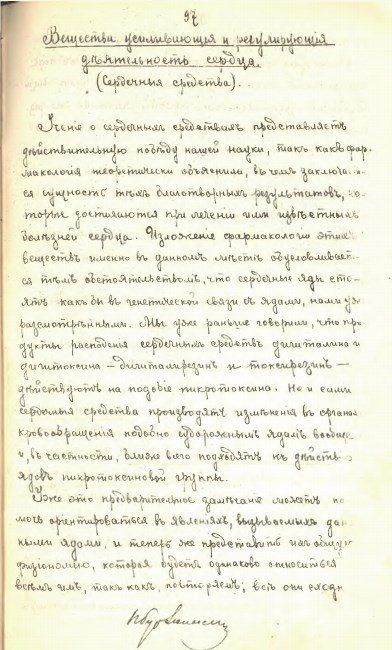 97
Вещества усиливающія и регулирующія
дѣятельность сердца.
(Сердечныя средства).
Ученіе о сердечныхъ средствахъ представляетъ
дѣйствительную побѣду нашей науки, такъ какъ фар-
макологія теоретически объяснила, въ чемъ заключает
ся сущность тѣхъ благотворныхъ результатовъ, ко-
торые достигаются при леченіи ими извѣстныхъ
болѣзней сердца. Изложеніе фармакологіи этихъ
веществъ именно въ данномъ мѣстѣ обусловливает
ся тѣмъ обстоятельствомъ, что сердечные яды сто-
ятъ какъ бы въ генетической связи съ ядами, нами уже
разсмотрѣнными. Мы уже раньше говорили, что про
дукты распаденія сердечныхъ средствъ дигиталина и
дигитоксина – дигиталирезинъ и токсирезинъ –
дѣйствуютъ на подобіе пикротоксина. Но и сами
сердечныя средства производятъ измѣненія въ органахъ
кровообращенія подобно судорожнымъ ядамъ вообще
и, въ частности, ближе всего подходятъ къ дѣйствію
ядовъ пикротоксиновой группы.
Уже это предварительное замѣчаніе можетъ по
мочь оріентироваться въ явленіяхъ, вызываемыхъ дан
ными ядами, и теперь же представить ихъ общую
физіономію, которая будетъ одинаково относиться
всѣмъ имъ, такъ какъ, повторяемъ, всѣ они сходн